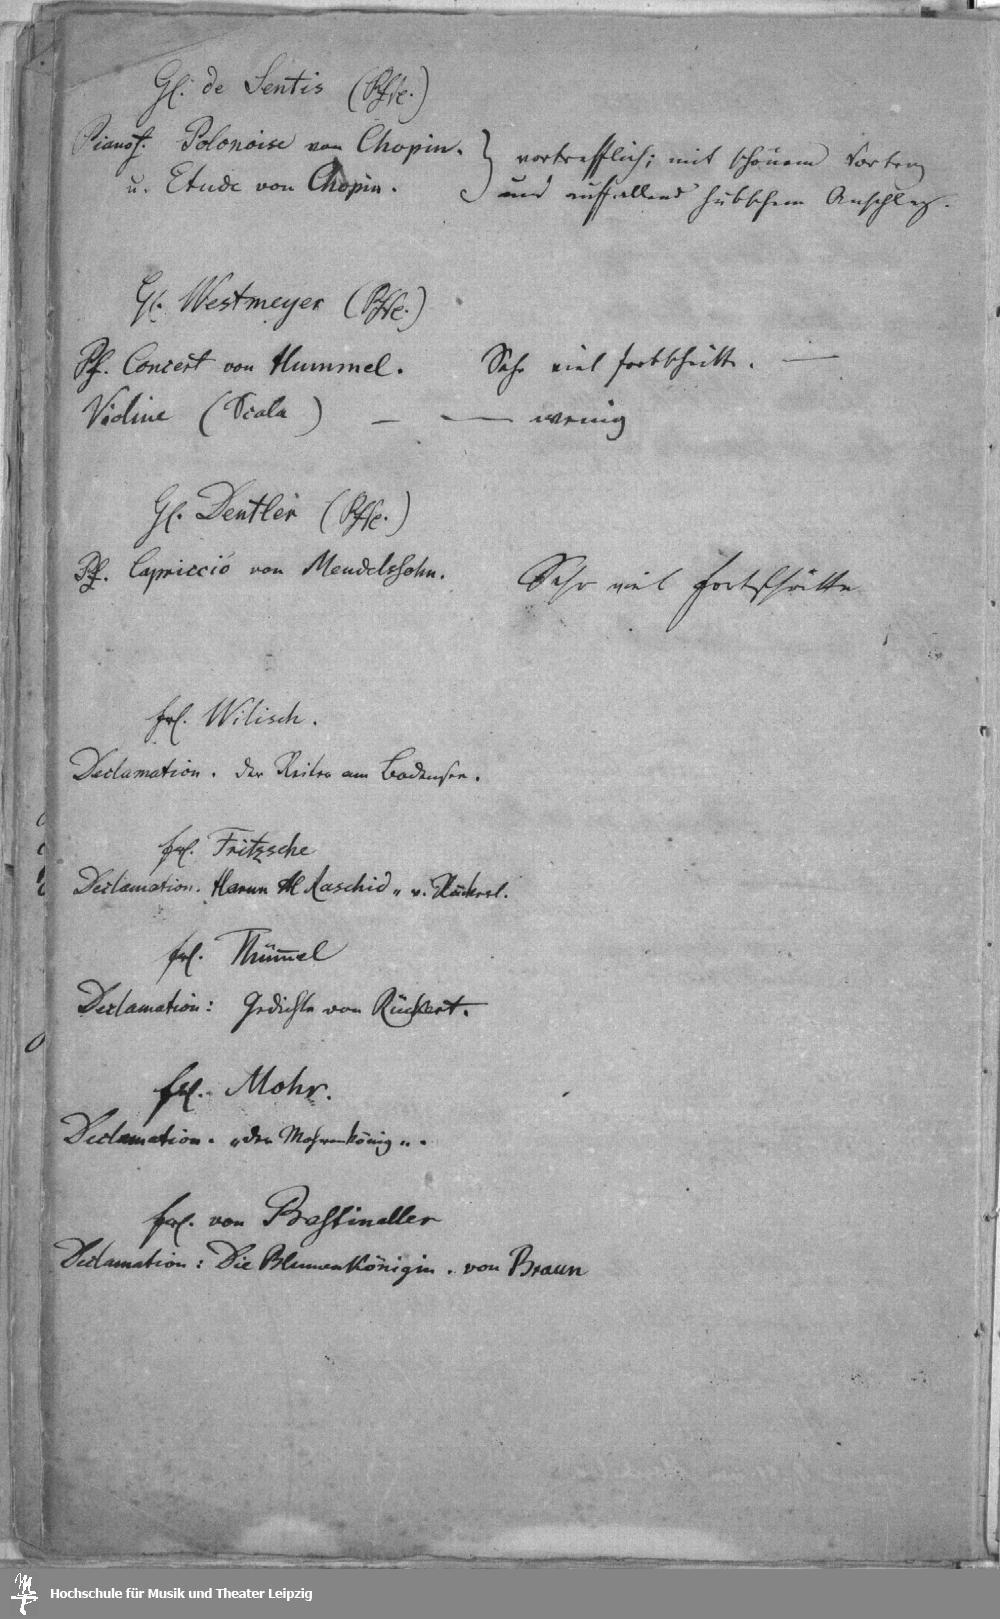 H. de Sentis (Pfte.)
Pianof. Polonoise von Chopin. } vortrefflich; mit schönem Vortrag
u. Etude von Chopin. und auffallend hübschem Anschlag.
H. Westmeyer (Pfte.)
Pf. Concert von Hummel. Sehr viel Fortschritte. —
Violine (Scala) — — wenig
H. Dentler (Pfte.)
Pf. Capriccio von Mendelssohn. Sehr viel Fortschritte
Frl. Wilisch.
Declamation. der Reiter am Bodensee.
Frl. Fritzsche
Declamation. Harun Al Raschid" v. Rückert.
Frl. Thümmel
Declamation: Gedichte von Rückert.
Frl. Mohr.
Declamation. "der Mohrenkönig".
Frl. von Bastineller
Declamation: Die Blumenkönigin. von Braun
Hochschule für Musik und Theater Leipzig